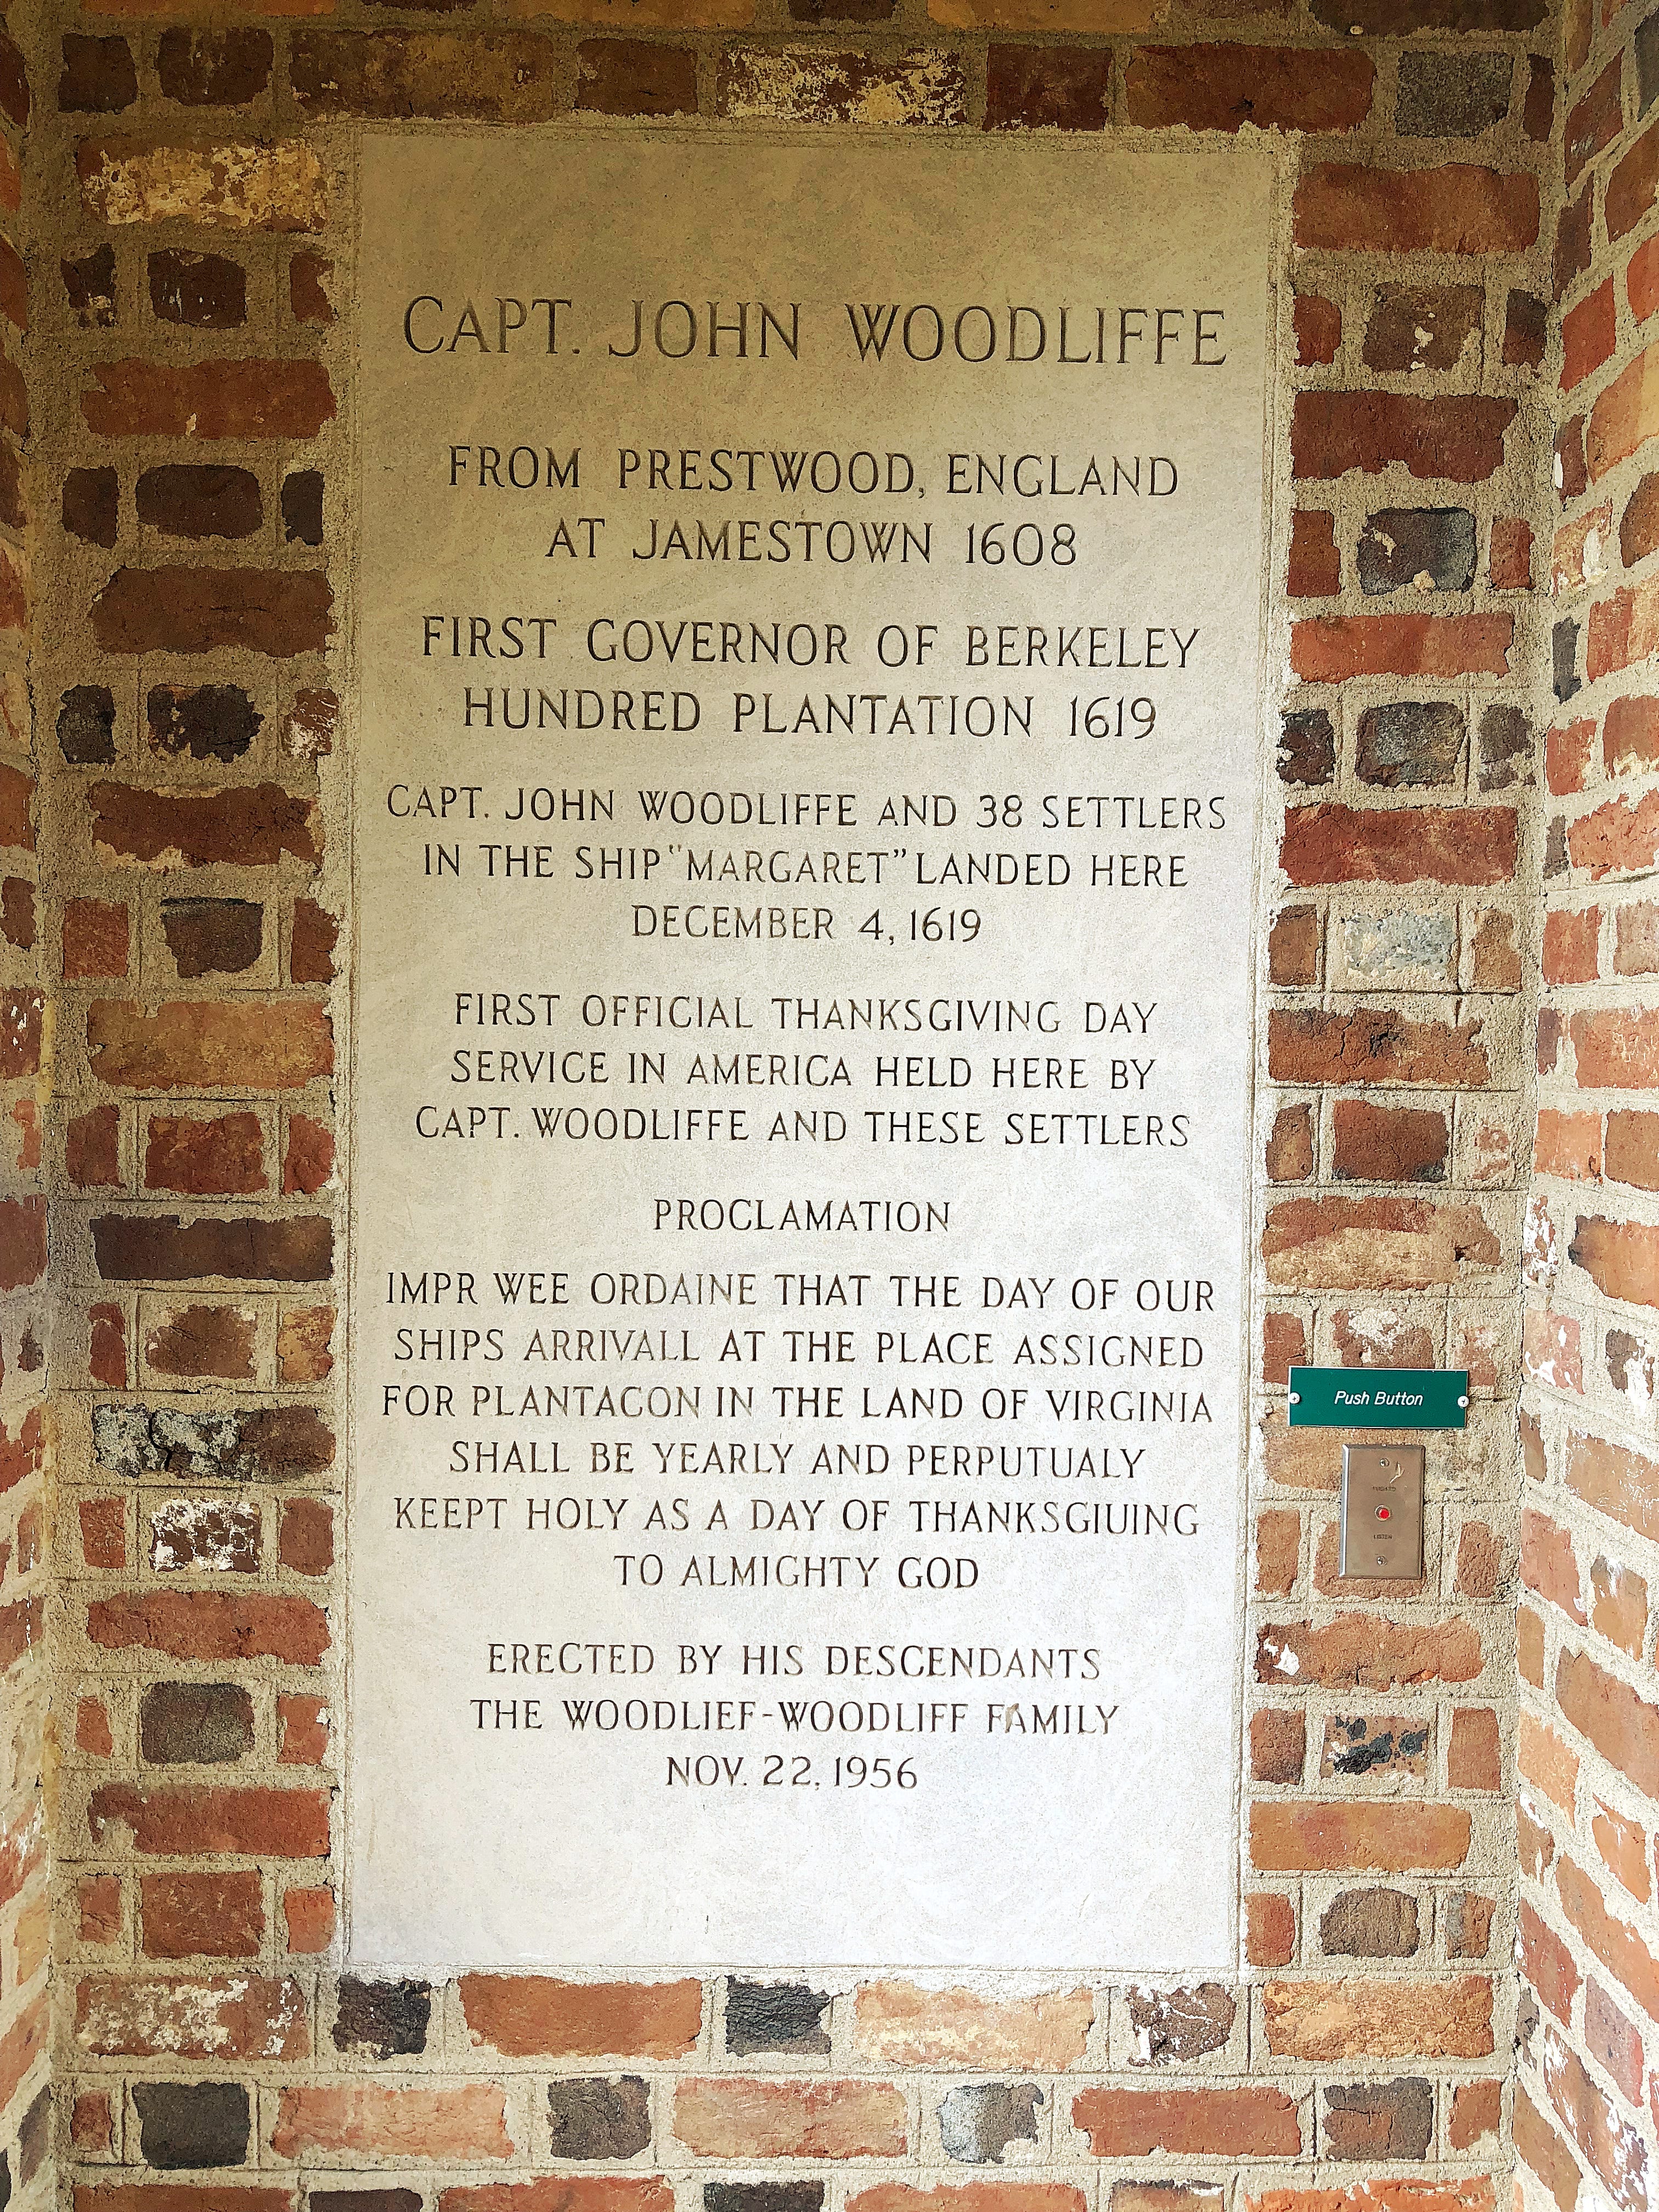 CAPT. JOHN WOODLIFFE
FROM PRESTWOOD, ENGLAND
AT JAMESTOWN 1608
FIRST GOVERNOR OF BERKELEY
HUNDRED PLANTATION 1619
CAPT. JOHN WOODLIFFE AND 38 SETTLERS
IN THE SHIP "MARGARET" LANDED HERE
DECEMBER 4, 1619
FIRST OFFICIAL THANKSGIVING DAY
SERVICE IN AMERICA HELD HERE BY
CAPT. WOODLIFFE AND THESE SETTLERS
PROCLAMATION
IMPR WEE ORDAINE THAT THE DAY OF OUR
SHIPS ARRIVALL AT THE PLACE ASSIGNED
FOR PLANTACON IN THE LAND OF VIRGINIA
SHALL BE YEARLY AND PERPUTUALY
KEEPT HOLY AS A DAY OF THANKSGIUING
TO ALMIGHTY GOD
ERECTED BY HIS DESCENDANTS
THE WOODLIEF-WOODLIFF FAMILY
NOV. 22, 1956
Push Button
LISTEN